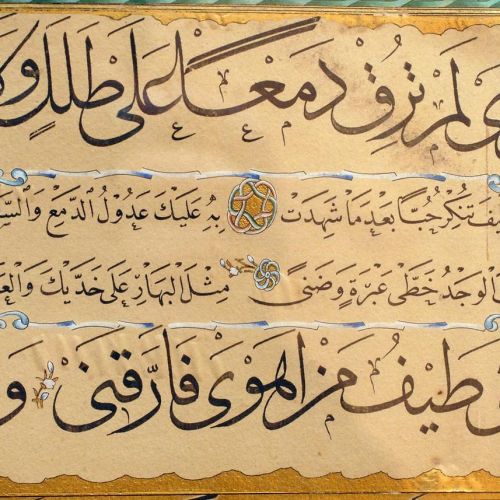 لَمْ تُرِقْ دَمْعًا عَلَى طَلَلٍ وَ
تُنْكِرُ حُبًّا بَعْدَ مَا شَهِدَتْ بِهِ عَلَيْكَ عَدُولُ الدَّمْعِ وَالسَّ
الْوَجْدُ خَطَّيْ عَبْرَةٍ وَضَنًى مِثْلَ الْبَهَارِ عَلَى خَدَّيْكَ وَالْعَ
طَيْفُ مَنْ اَهْوَى فَارَّقَنِى وَ